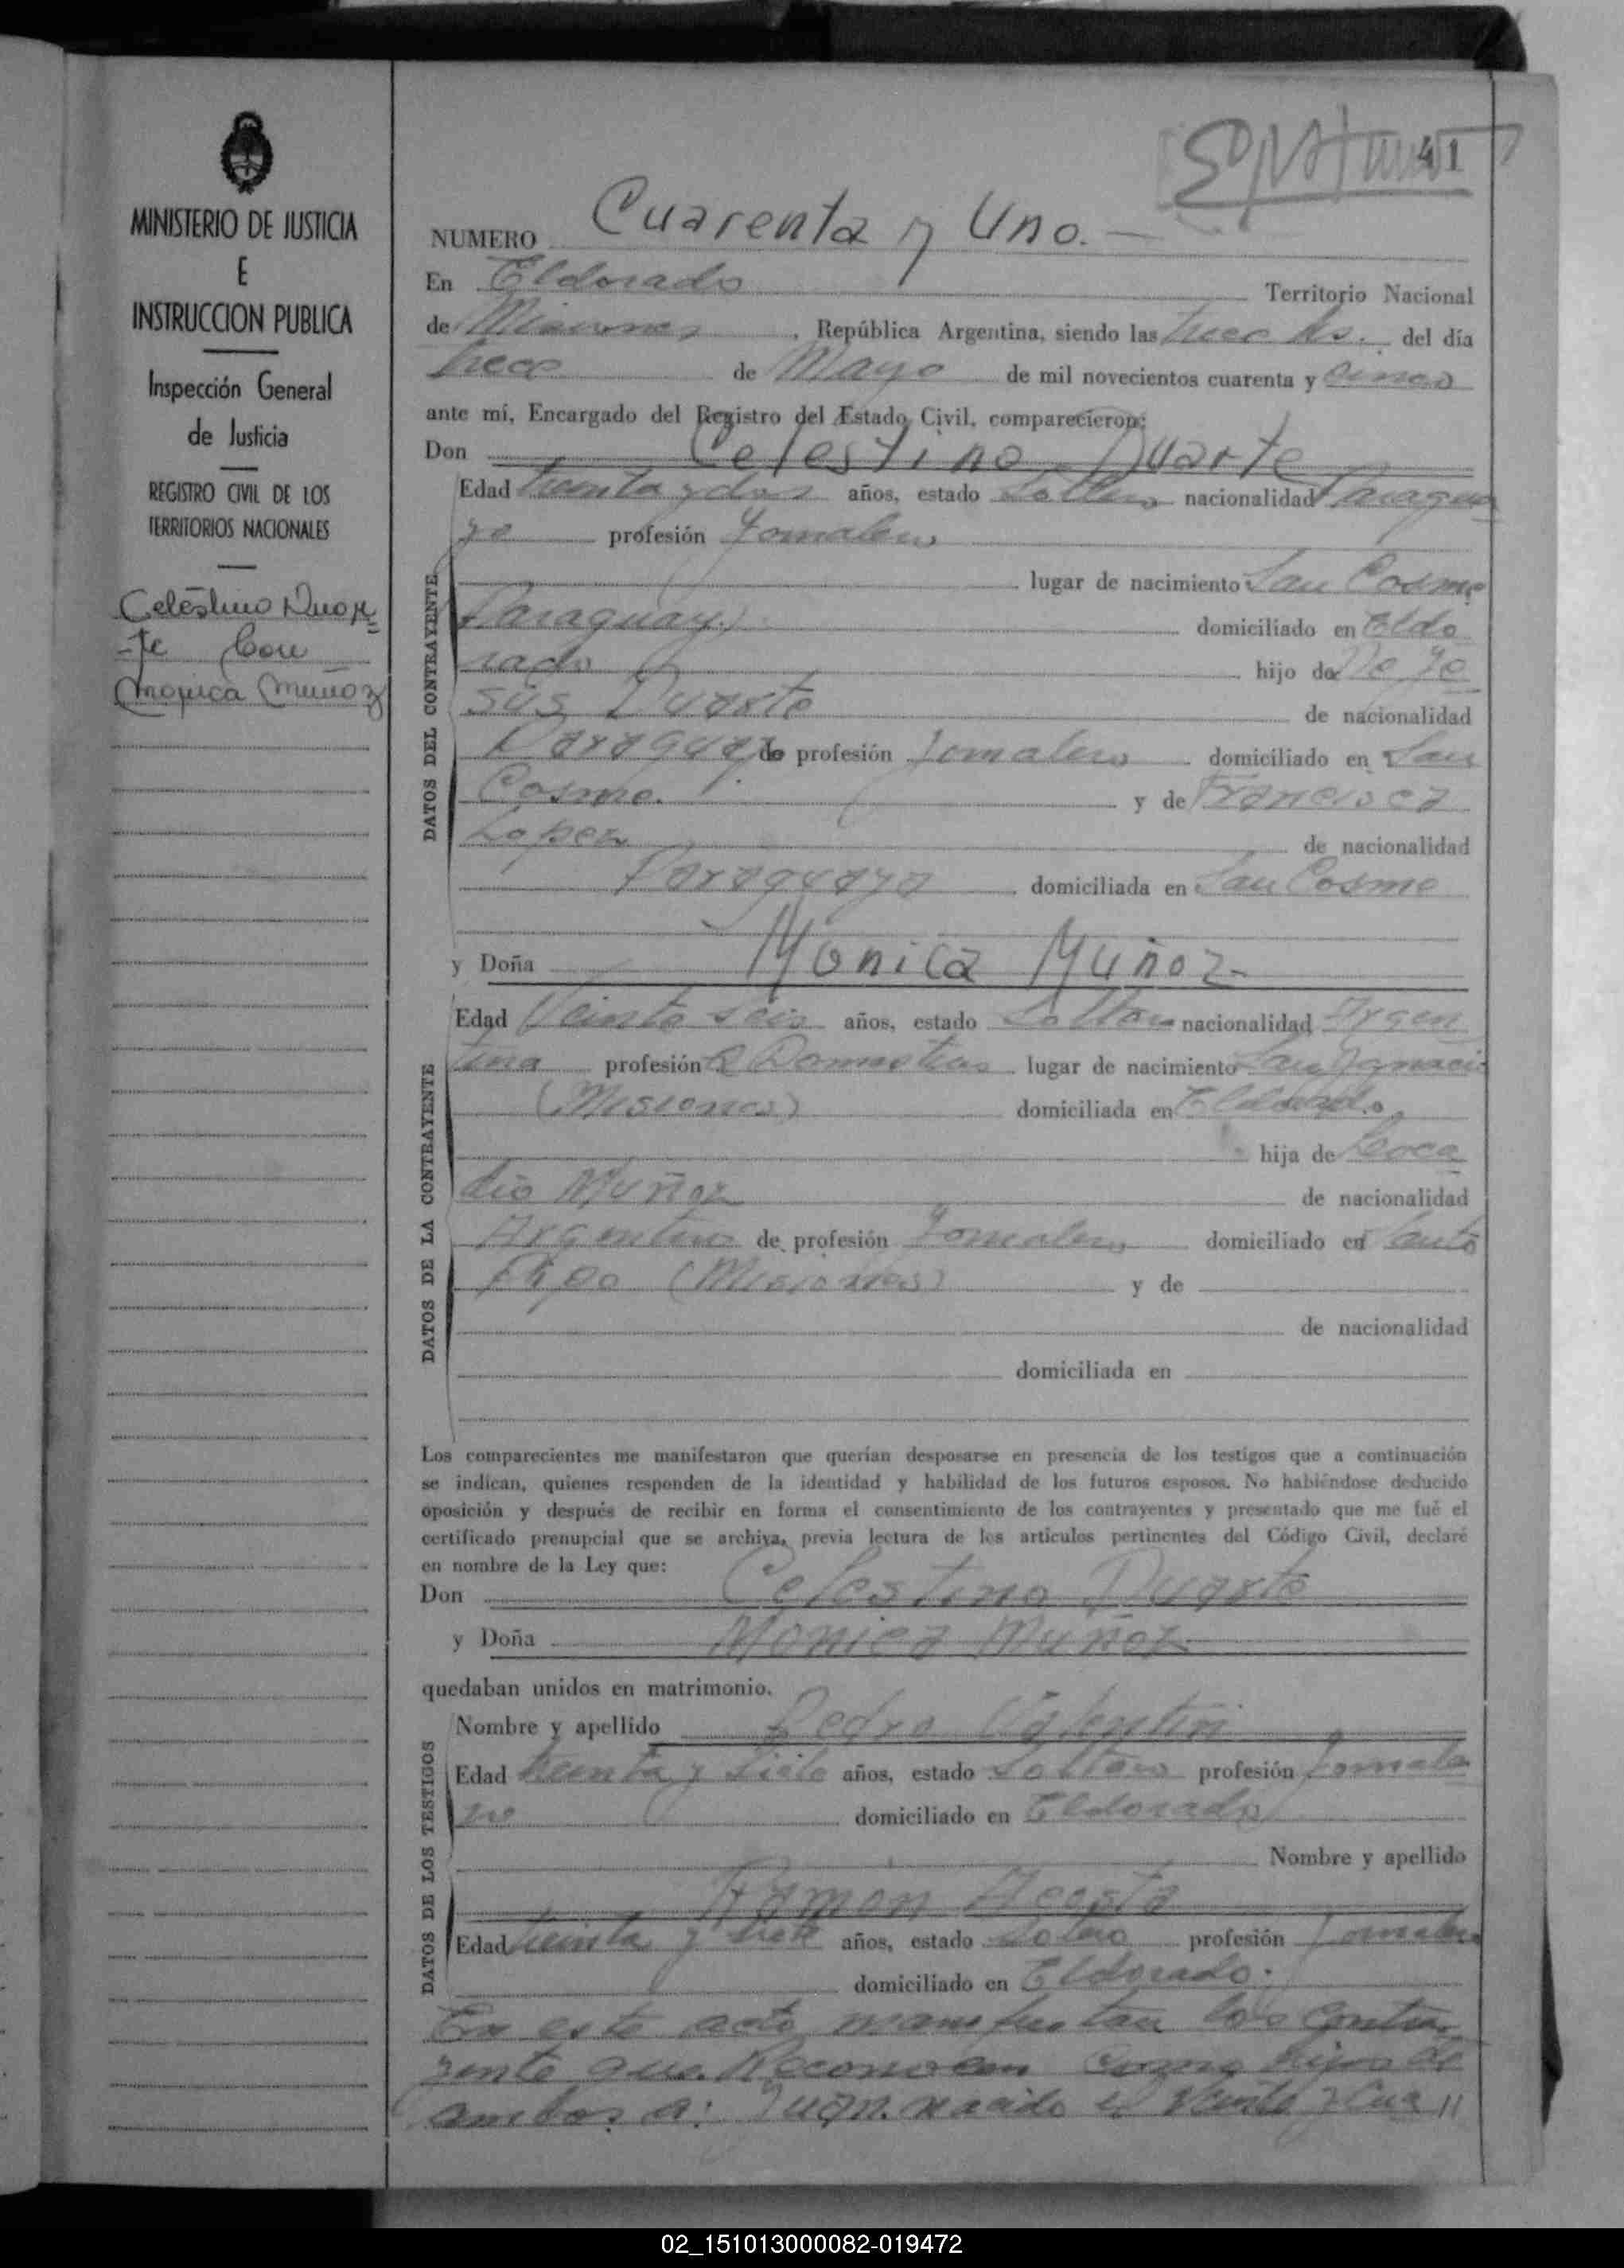 41
MINISTERIO DE JUSTICIA
E
INSTRUCCION PUBLICA
Inspección General
de Justicia
REGISTRO CIVIL DE LOS
TERRITORIOS NACIONALES
Celestino Duar
-te Con
Monica Muñoz
NUMERO Cuarenta y Uno.-
En Eldorado Territorio Nacional
de Misiones, República Argentina, siendo las trece hs. del día
trece de Mayo de mil novecientos cuarenta y cinco
ante mí, Encargado del Registro del Estado Civil, comparecieron:
Don Celestino Duarte
DATOS DEL CONTRAYENTE
Edad treinta y dos años, estado Soltero nacionalidad Paragua
yo profesión Jornalero
lugar de nacimiento San Cosme
Paraguay) domiciliado en Eldo
rado hijo de De Je
sús Duarte de nacionalidad
Paraguayo de profesión Jornalero domiciliado en San
Cosme. y de Francisca
Lopez de nacionalidad
Paraguaya domiciliada en San Cosme
y Doña Monica Muñoz-
DATOS DE LA CONTRAYENTE
Edad Veinte seis años, estado Soltera nacionalidad Argen
tina profesión Q Domesticos lugar de nacimiento San Ignacio
(Misiones) domiciliada en Eldorado.
hija de Leoca
dio Muñoz de nacionalidad
Argentino de profesión Jornalero domiciliado en Santo
Pipo (Misiones) y de
de nacionalidad
domiciliada en
Los comparecientes me manifestaron que querían desposarse en presencia de los testigos que a continuación
se indican, quienes responden de la identidad y habilidad de los futuros esposos. No habiéndose deducido
oposición y después de recibir en forma el consentimiento de los contrayentes y presentado que me fué el
certificado prenupcial que se archiva, previa lectura de los artículos pertinentes del Código Civil, declaré
en nombre de la Ley que:
Don Celestino Duarte
y Doña Monica Muñoz
quedaban unidos en matrimonio.
DATOS DE LOS TESTIGOS
Nombre y apellido Pedro Valentin
Edad treinta y siete años, estado Soltero profesión Jornale
ro domiciliado en Eldorado
Nombre y apellido
Ramon Acosta
Edad treinta y siete años, estado Soltero profesión Jornalero
domiciliado en Eldorado.
En este acto manifiestan los contra
yente que Reconocen como hijos de
ambos a: Juan. nacido el Veinte y Cua //
02_151013000082-019472